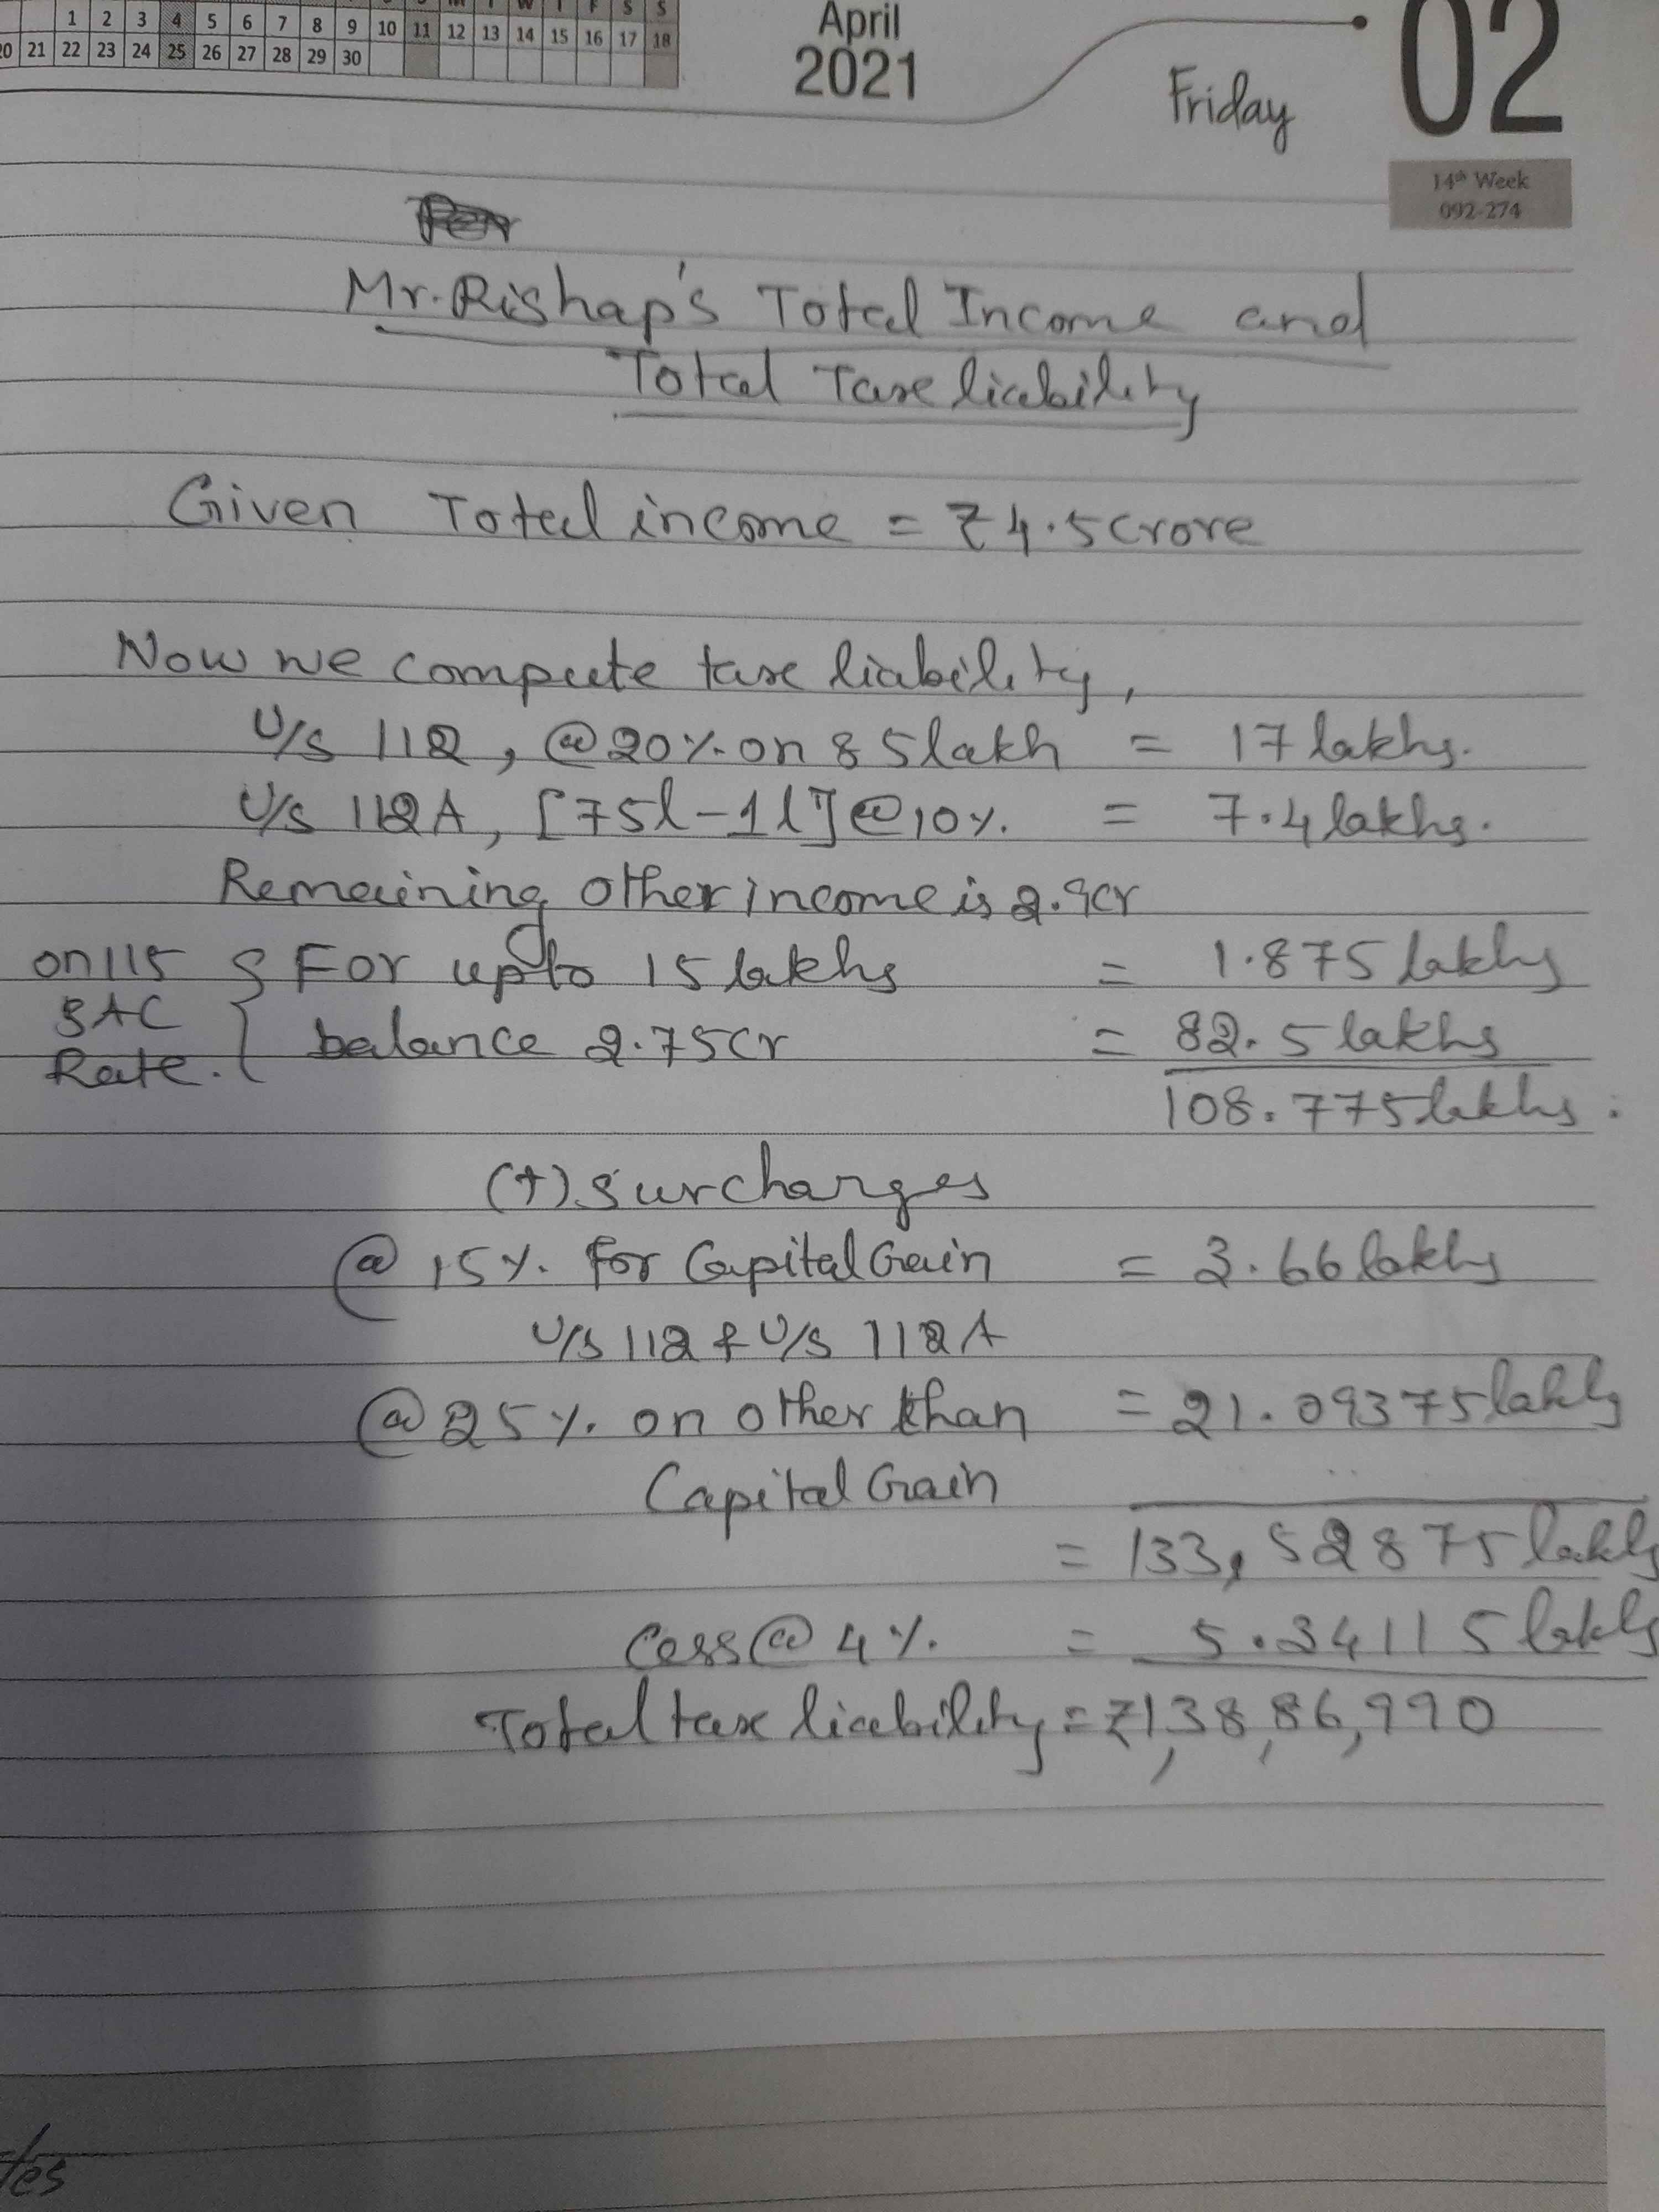 S M T W T F S S
1 2 3 4 5 6 7 8 9 10 11 12 13 14 15 16 17 18
20 21 22 23 24 25 26 27 28 29 30
April
2021
Friday
02
14th Week
092-274
Mr. Rishap's Total Income and
Total Tax liability
Given Total income = ₹4.5 crore
Now we compute tax liability,
U/s 112, @20% on 85 lakh = 17 lakhs.
U/s 112A, [75l-1l]@10% = 7.4 lakhs.
Remaining other income is 2.9cr
on 115 For upto 15 lakhs = 1.875 lakhs
BAC
balance 2.75cr = 82.5 lakhs
Rate.
108.775 lakhs.
(+) surcharges
@ 15% for Capital Gain = 3.66 lakhs
U/s 112 & U/s 112A
@ 25% on other than = 21.09375 lakhs
Capital Gain
= 133.52875 lakhs
Cess @ 4% = 5.34115 lakhs
Total tax liability = ₹1,38,86,990
tes